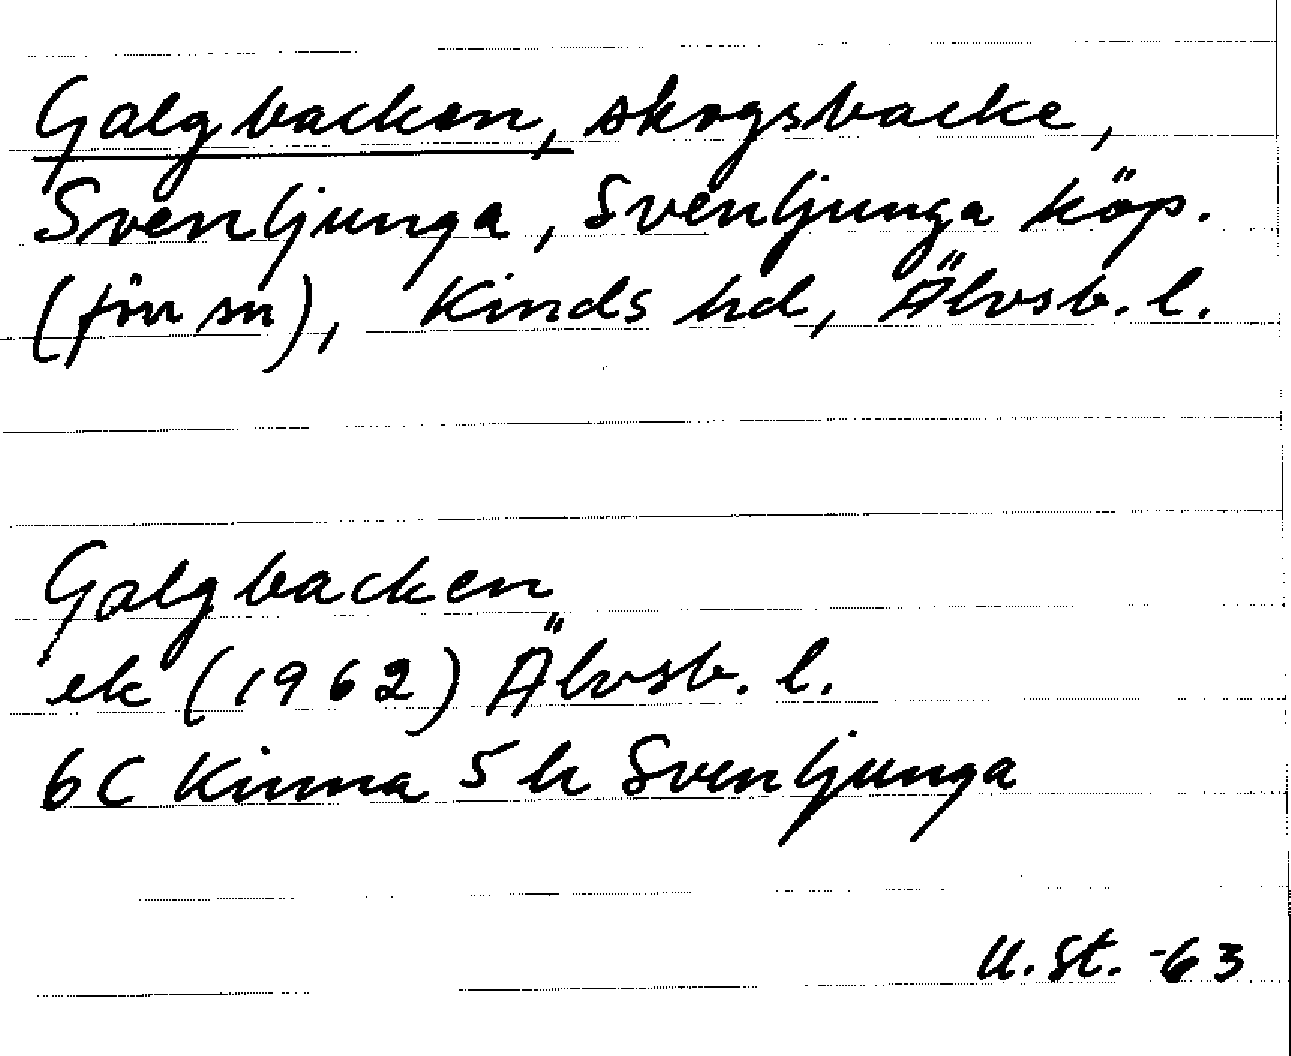 Galgbacken, skogsbacke,
Svenljunga, Svenljunga köp.
(förr sn), Kinds hd, Älvsb. l.
Galgbacken
ek (1962) Älvsb. l.
6C Kinna 5 h Svenljunga
U. St. -63